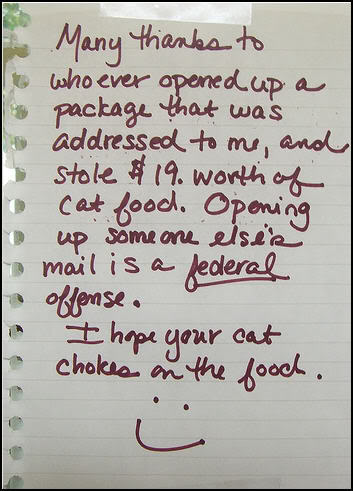 Many thanks to
whoever opened up a
package that was
addressed to me, and
stole $19. worth of
cat food. Opening
up someone else's
mail is a federal
offense.
I hope your cat
chokes on the food.